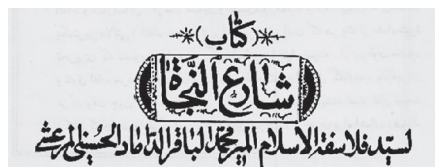 (كتاب)
شارع النجاة
لسيد فلاسفة الاسلام المير محمد الباقر الداماد الحسيني المرعشي